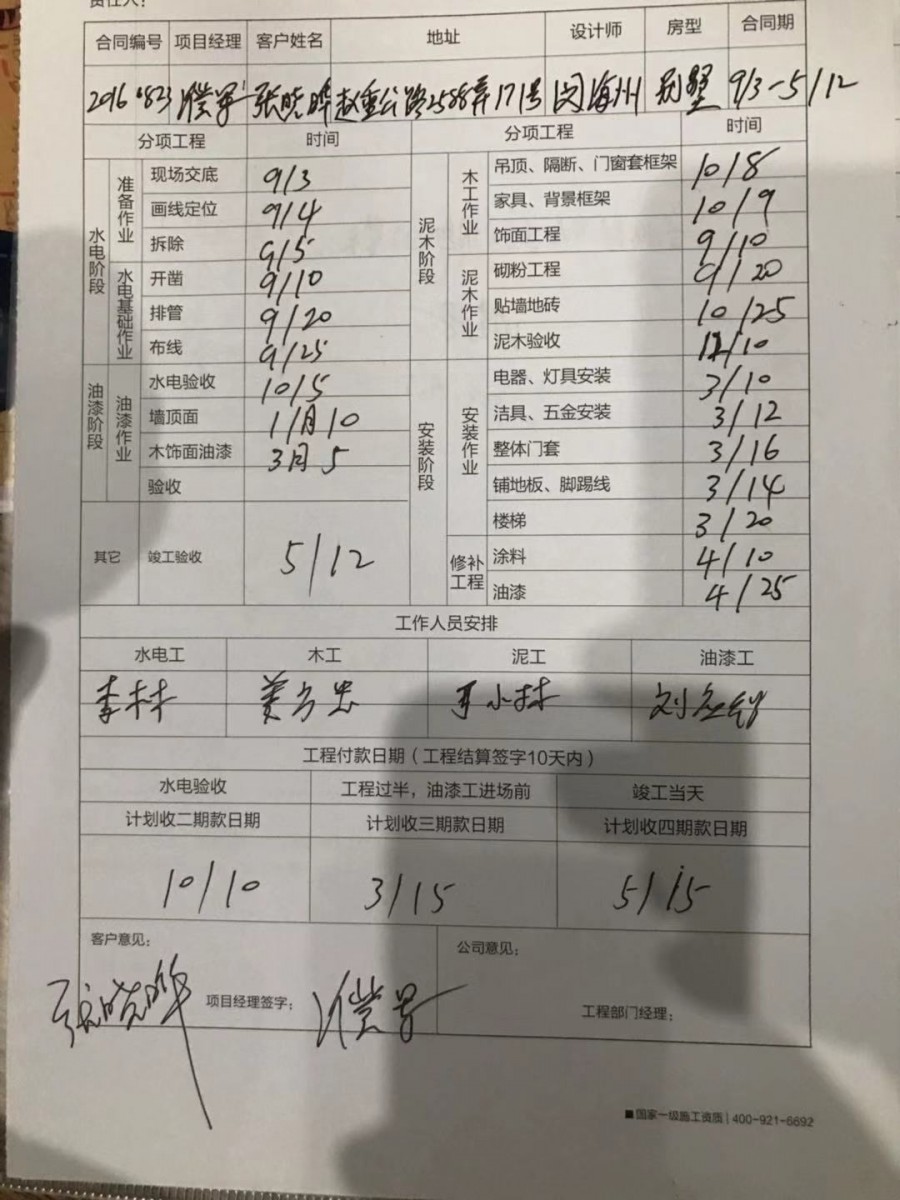 责任人：
合同编号 项目经理 客户姓名 地址 设计师 房型 合同期
2016 '823 张晓晔 赵重公路2588弄171号 闵海州 别墅 9/3-5/12
分项工程 时间 分项工程 时间
水电阶段 准备作业 现场交底 9/3 泥木阶段 木工作业 吊顶、隔断、门窗套框架 10/8
画线定位 9/4 家具、背景框架 10/9
拆除 9/5 饰面工程 9/10
水电基础作业 开凿 9/10 泥木作业 砌粉工程 9/20
排管 9/20 贴墙地砖 10/25
布线 9/25 泥木验收 12/10
油漆阶段 油漆作业 水电验收 10/5 安装阶段 安装作业 电器、灯具安装 3/10
墙顶面 11月10 洁具、五金安装 3/12
木饰面油漆 3月5 整体门套 3/16
验收 铺地板、脚踢线 3/14
楼梯 3/20
其它 竣工验收 5/12 修补工程 涂料 4/10
油漆 4/25
工作人员安排
水电工 木工 泥工 油漆工
李林
工程付款日期（工程结算签字10天内）
水电验收 工程过半，油漆工进场前 竣工当天
计划收二期款日期 计划收三期款日期 计划收四期款日期
10/10 3/15 5/15
客户意见： 公司意见：
张晓晔 项目经理签字： 工程部门经理：
■国家一级施工资质 | 400-921-6692